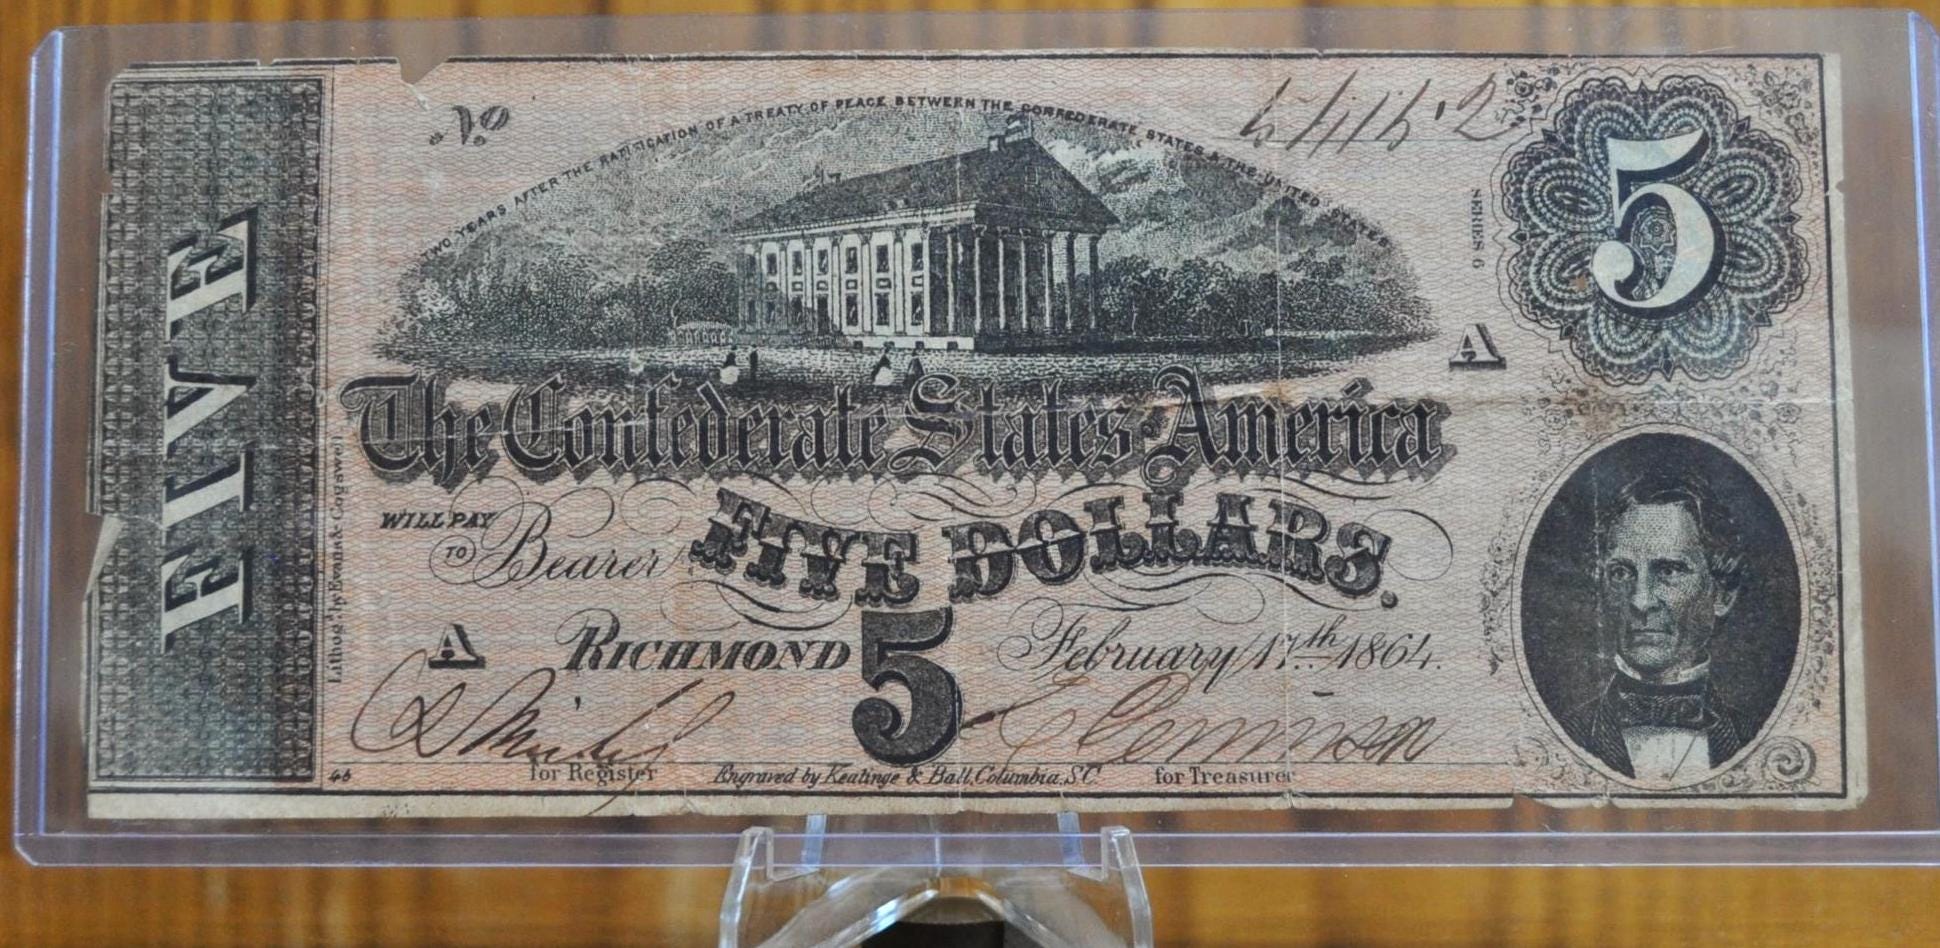 No
TWO YEARS AFTER THE RATIFICATION OF A TREATY OF PEACE BETWEEN THE CONFEDERATE STATES & THE UNITED STATES
5
SERIES 6
A
FIVE
The Confederate States America
WILL PAY
TO Bearer FIVE DOLLARS.
A RICHMOND 5 February 17th 1864.
Lithog'd by Evans & Cogswell
46
for Register Engraved by Keatinge & Ball, Columbia, S.C. for Treasurer